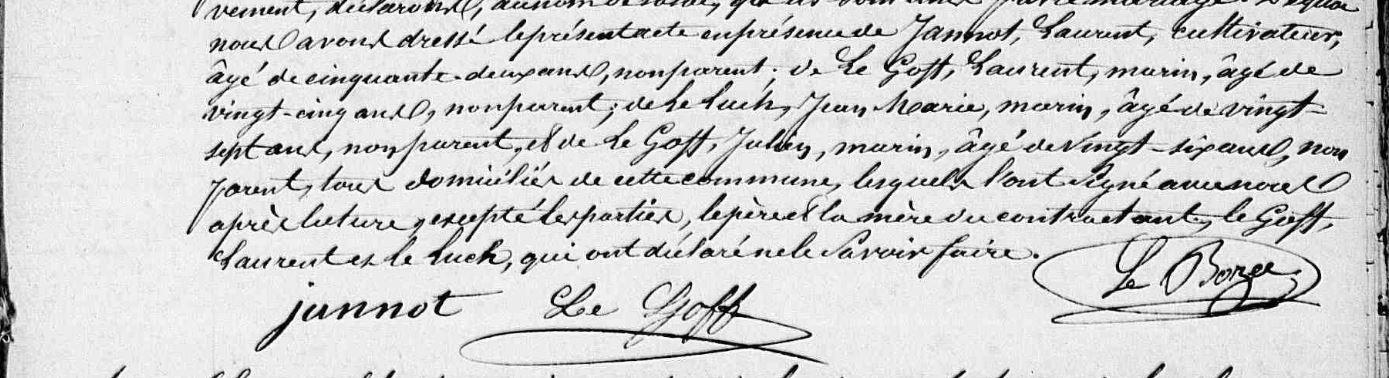 vement, déclarons, au nom de la loi, qu'ils sont unis par le mariage. De quoi
nous avons dressé le présent acte en présence de Jannot, Laurent, cultivateur,
âgé de cinquante-deux ans, non parent; de Le Goff, Laurent, marin, âgé de
vingt-cinq ans, non parent; de Le Luch, Jean Marie, marin, âgé de vingt-
sept ans, non parent, et de Le Goff, Julien, marin, âgé de vingt-six ans, non
parent, tous domiciliés de cette commune, lesquels l'ont signé avec nous
après lecture, excepté les parties, le père et la mère du contractant, le Goff,
Laurent et le Luch, qui ont déclaré ne le savoir faire.
jannot Le Goff Le